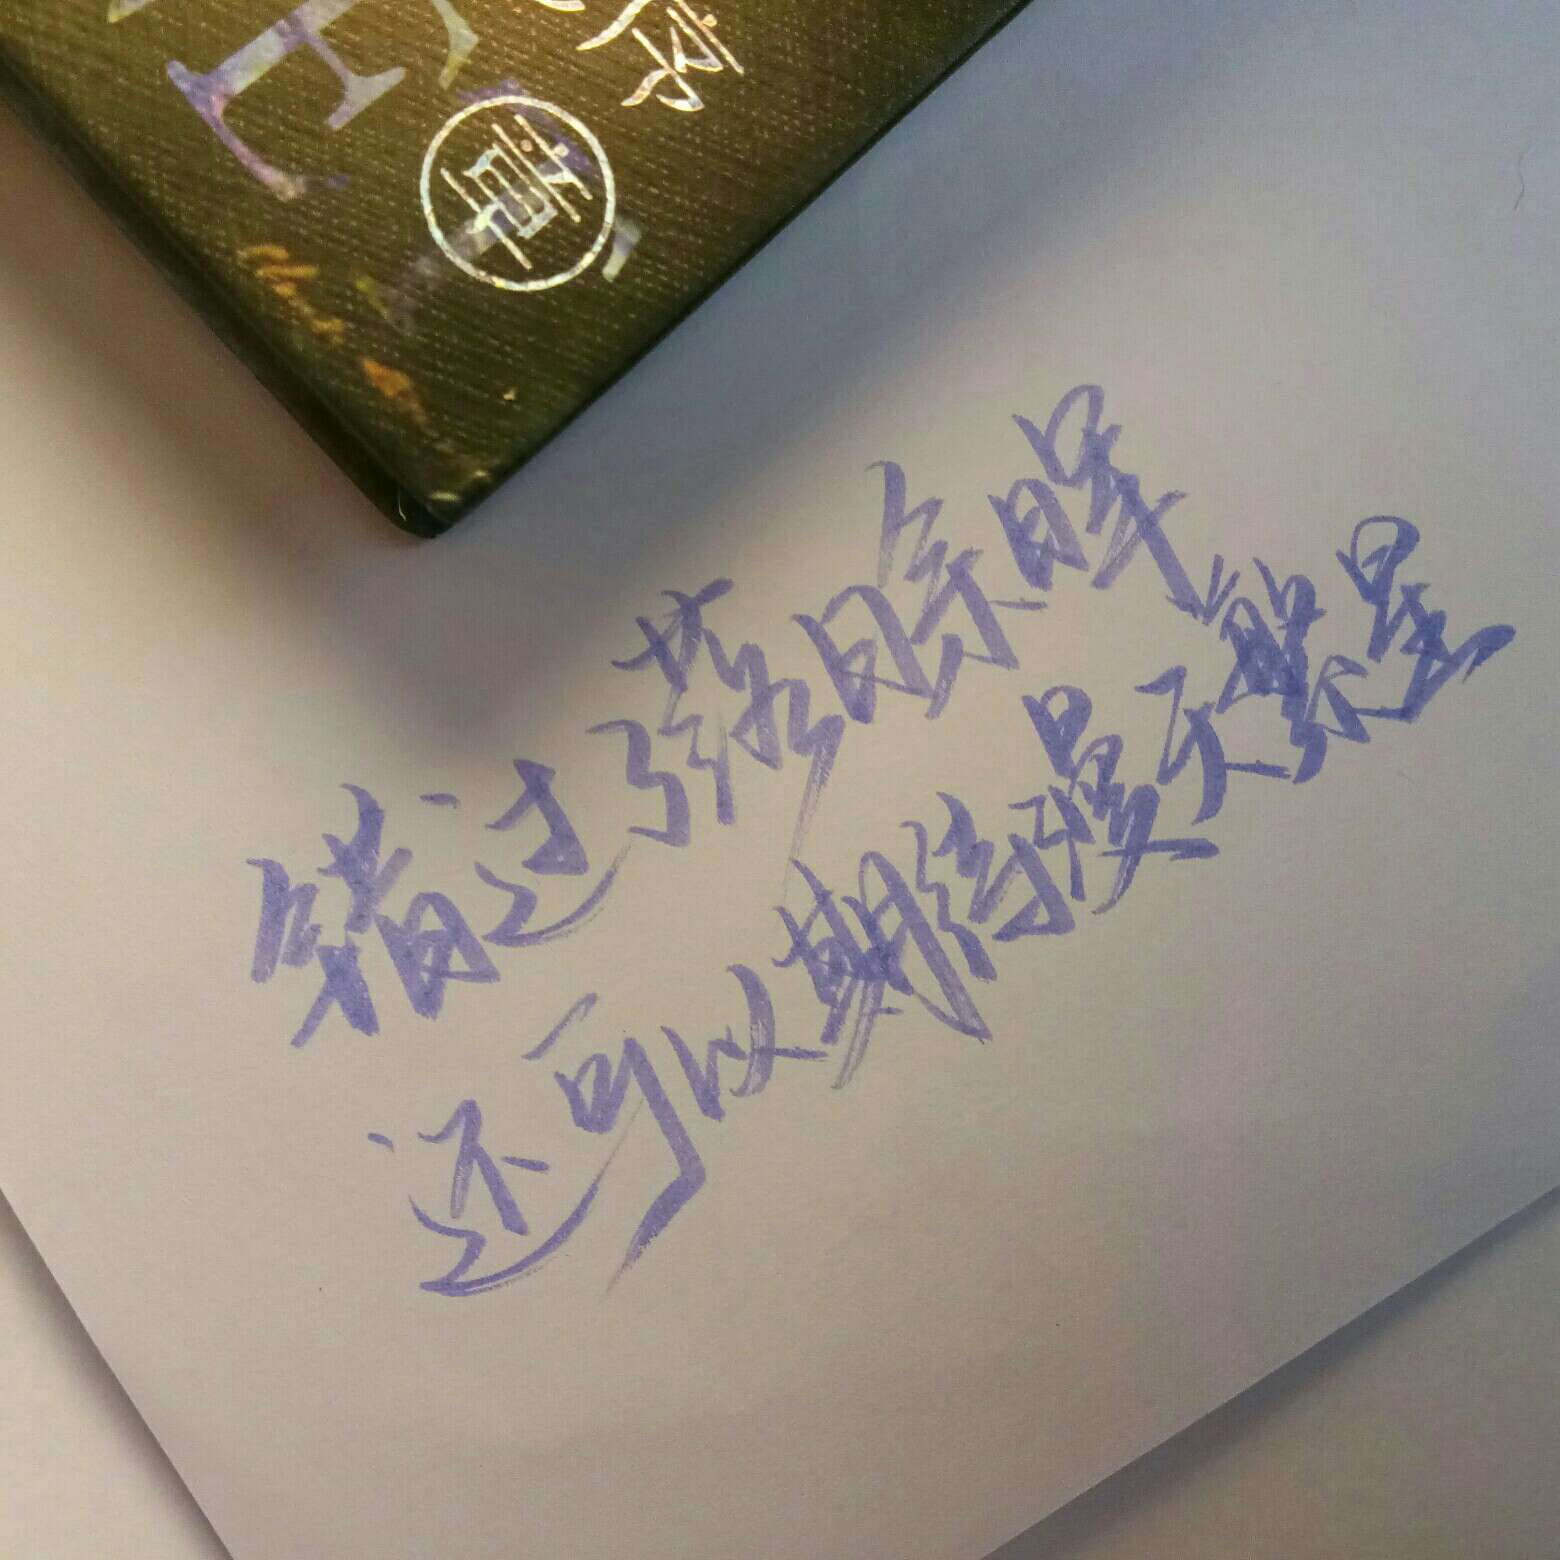 错过了落日余晖
还可以期待漫天繁星